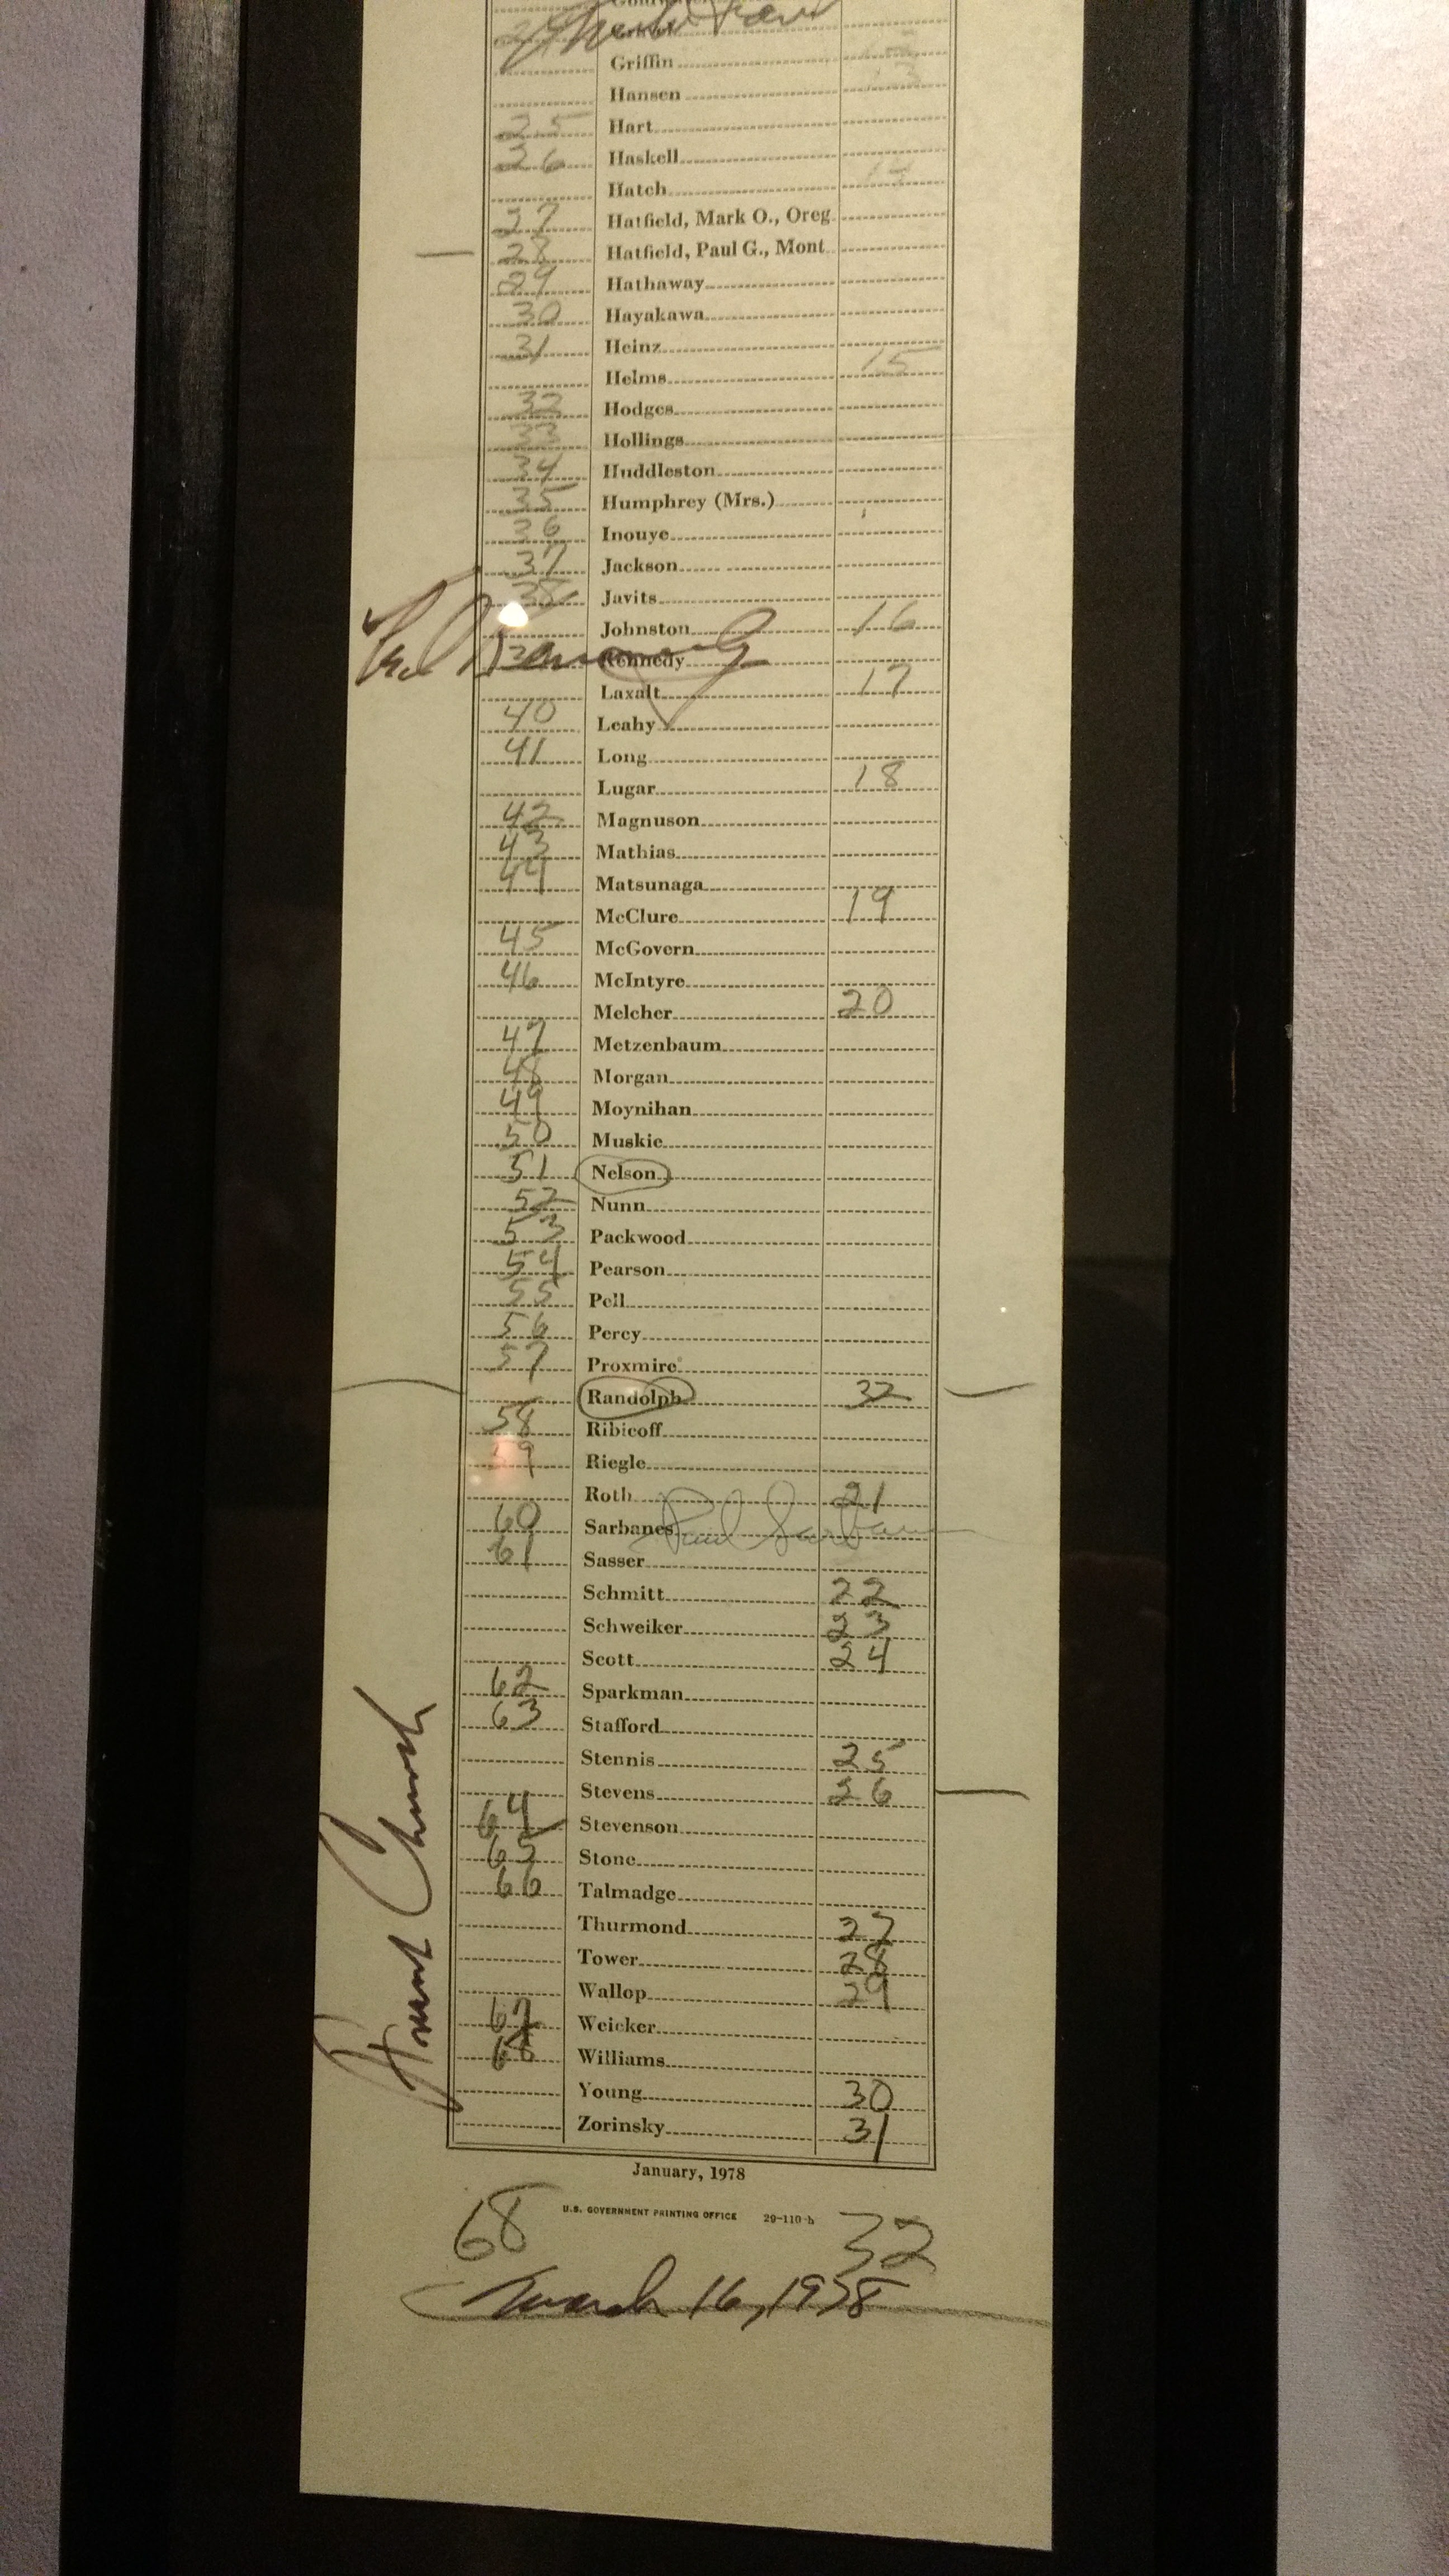 Griffin
Hansen
25 Hart
26 Haskell
Hatch
27 Hatfield, Mark O., Oreg
28 Hatfield, Paul G., Mont
29 Hathaway
30 Hayakawa
31 Heinz
Helms 15
32 Hodges
33 Hollings
34 Huddleston
35 Humphrey (Mrs.)
36 Inouye
37 Jackson
38 Javits
Johnston 16
Kennedy
Laxalt 17
40 Leahy
41 Long
Lugar 18
42 Magnuson
43 Mathias
44 Matsunaga
McClure 19
45 McGovern
46 McIntyre
Melcher 20
47 Metzenbaum
48 Morgan
49 Moynihan
50 Muskie
51 Nelson
52 Nunn
53 Packwood
54 Pearson
55 Pell
56 Percy
57 Proxmire
Randolph 32
58 Ribicoff
59 Riegle
Roth 21
60 Sarbanes Paul Sarbanes
61 Sasser
Schmitt 22
Schweiker 23
Scott 24
62 Sparkman
63 Stafford
Stennis 25
Stevens 26
64 Stevenson
65 Stone
66 Talmadge
Thurmond 27
Tower 28
Wallop 29
67 Weicker
68 Williams
Young 30
Zorinsky 31
Frank Church
January, 1978
U.S. GOVERNMENT PRINTING OFFICE 29-110-b
68 32
March 16, 1978